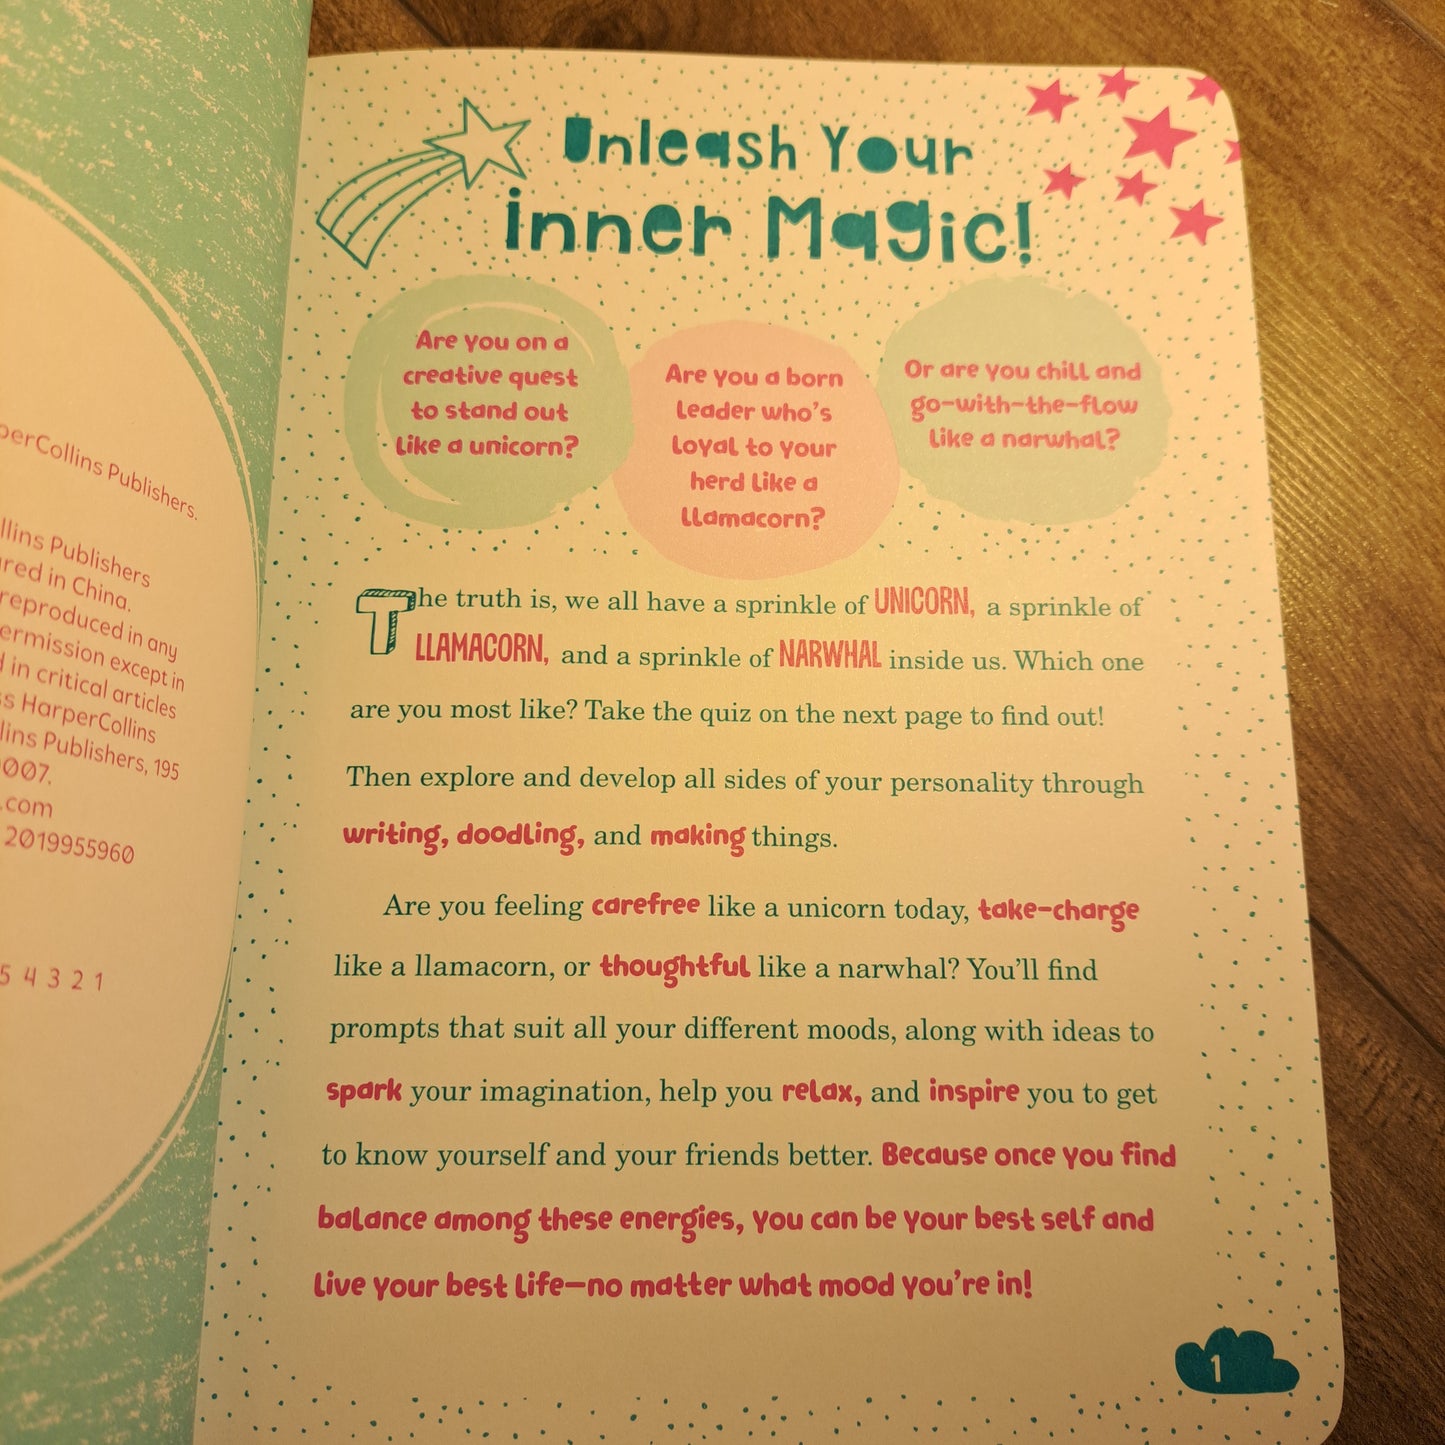 HarperCollins Publishers.
Collins Publishers
in China.
reproduced in any
permission except in
in critical articles
HarperCollins
Collins Publishers, 195
.com
2019955960
5 4 3 2 1
Unleash Your
inner Magic!
Are you on a
creative quest
to stand out
like a unicorn?
Are you a born
leader who's
loyal to your
herd like a
llamacorn?
Or are you chill and
go-with-the-flow
like a narwhal?
The truth is, we all have a sprinkle of UNICORN, a sprinkle of
LLAMACORN, and a sprinkle of NARWHAL inside us. Which one
are you most like? Take the quiz on the next page to find out!
Then explore and develop all sides of your personality through
writing, doodling, and making things.
Are you feeling carefree like a unicorn today, take-charge
like a llamacorn, or thoughtful like a narwhal? You'll find
prompts that suit all your different moods, along with ideas to
spark your imagination, help you relax, and inspire you to get
to know yourself and your friends better. Because once you find
balance among these energies, you can be your best self and
live your best life—no matter what mood you're in!
1